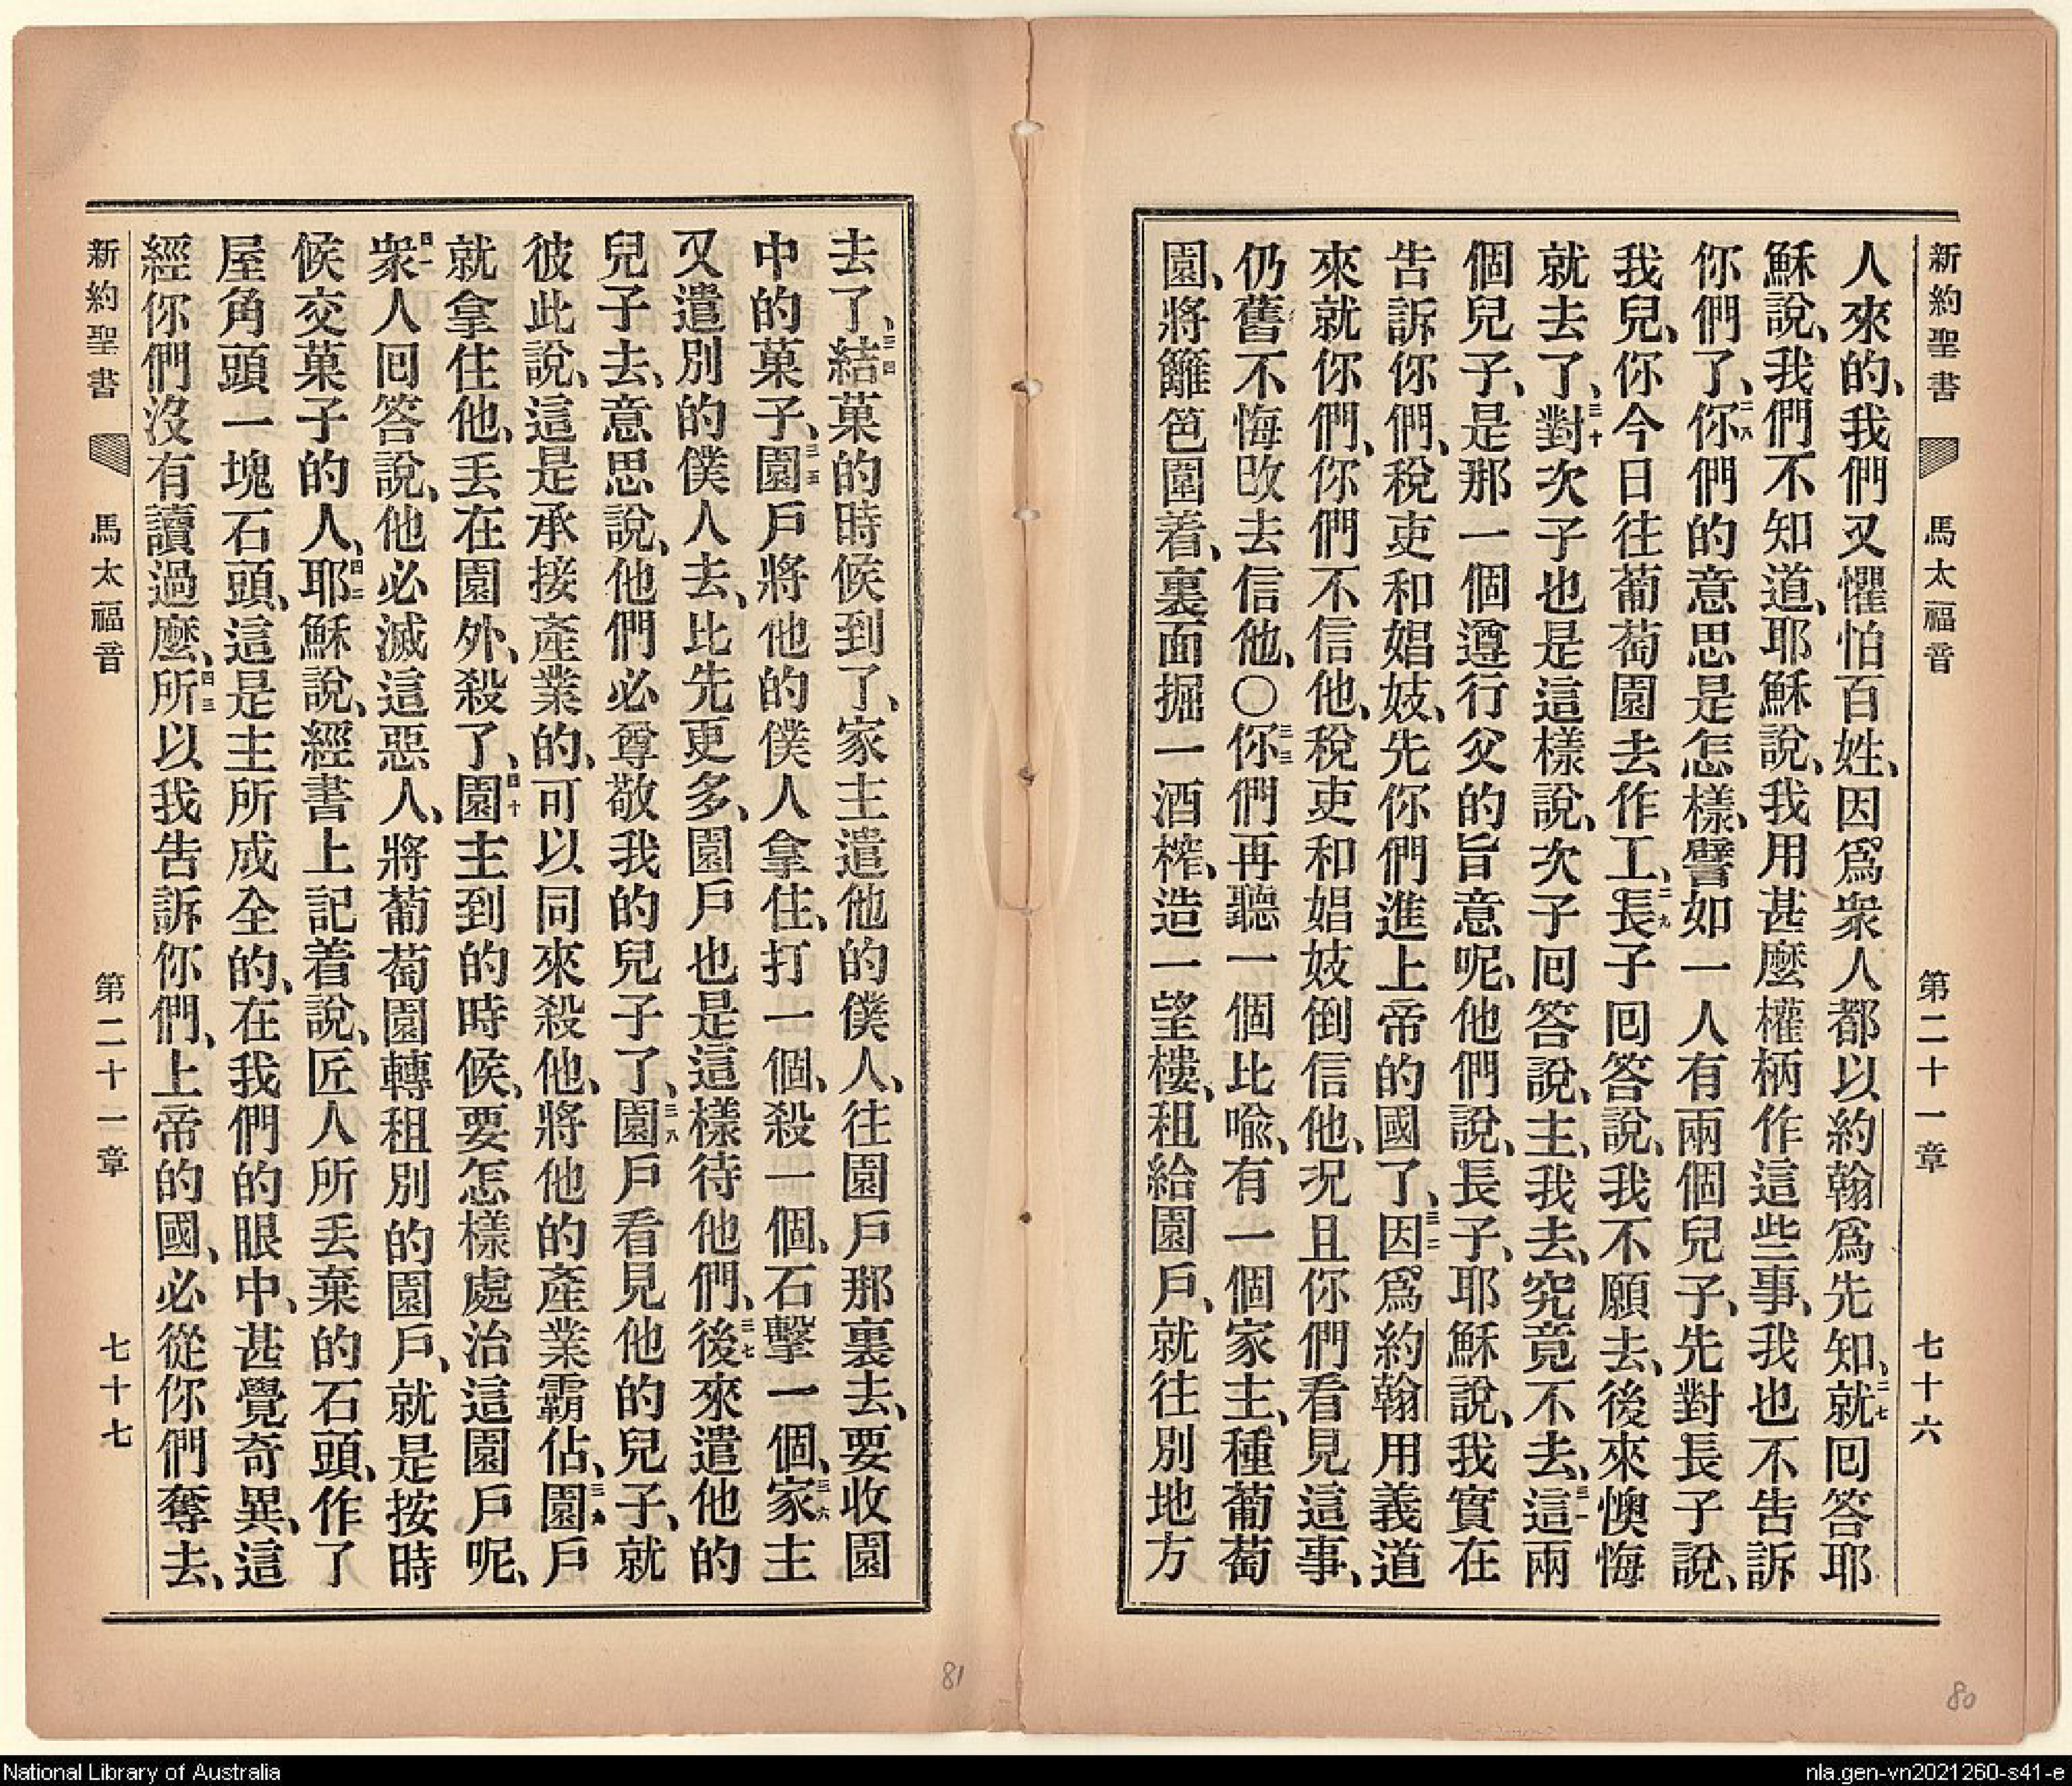 新約聖書 馬太福音 第二十一章 七十六
人來的、我們又懼怕百姓、因爲衆人都以約翰爲先知、二七就囘答耶
穌說、我們不知道、耶穌說、我用甚麼權柄作這些事、我也不告訴
你們了、二八你們的意思是怎樣、譬如一人有兩個兒子、先對長子說、
我兒、你今日往葡萄園去作工、二九長子囘答說、我不願去、後來懊悔
就去了、三十對次子也是這樣說、次子囘答說、主、我去、究竟不去、三一這兩
個兒子、是那一個遵行父的旨意呢、他們說、長子、耶穌說、我實在
告訴你們、稅吏和娼妓、先你們進上帝的國了、三二因爲約翰用義道
來就你們、你們不信他、稅吏和娼妓倒信他、况且你們看見這事、
仍舊不悔改去信他、〇三三你們再聽一個比喩、有一個家主、種葡萄
園、將籬笆圍着、裏面掘一酒榨、造一望樓、租給園戶、就往別地方
去了、三四結菓的時候到了、家主遣他的僕人、往園戶那裏去、要收園
中的菓子、三五園戶將他的僕人拿住、打一個、殺一個、石擊一個、三六家主
又遣別的僕人去、比先更多、園戶也是這樣待他們、三七後來遣他的
兒子去、意思說、他們必尊敬我的兒子了、三八園戶看見他的兒子、就
彼此說、這是承接產業的、可以同來殺他、將他的產業霸佔、三九園戶
就拿住他、丟在園外、殺了、四十園主到的時候、要怎樣處治這園戶呢、
四一衆人囘答說、他必滅這惡人、將葡萄園轉租別的園戶、就是按時
候交菓子的人、四二耶穌說、經書上記着說、匠人所丟棄的石頭、作了
屋角頭一塊石頭、這是主所成全的、在我們的眼中、甚覺奇異、這
經你們沒有讀過麼、四三所以我告訴你們、上帝的國、必從你們奪去、
新約聖書 馬太福音 第二十一章 七十七
80
81
National Library of Australia
nla.gen-vn2021260-s41-e